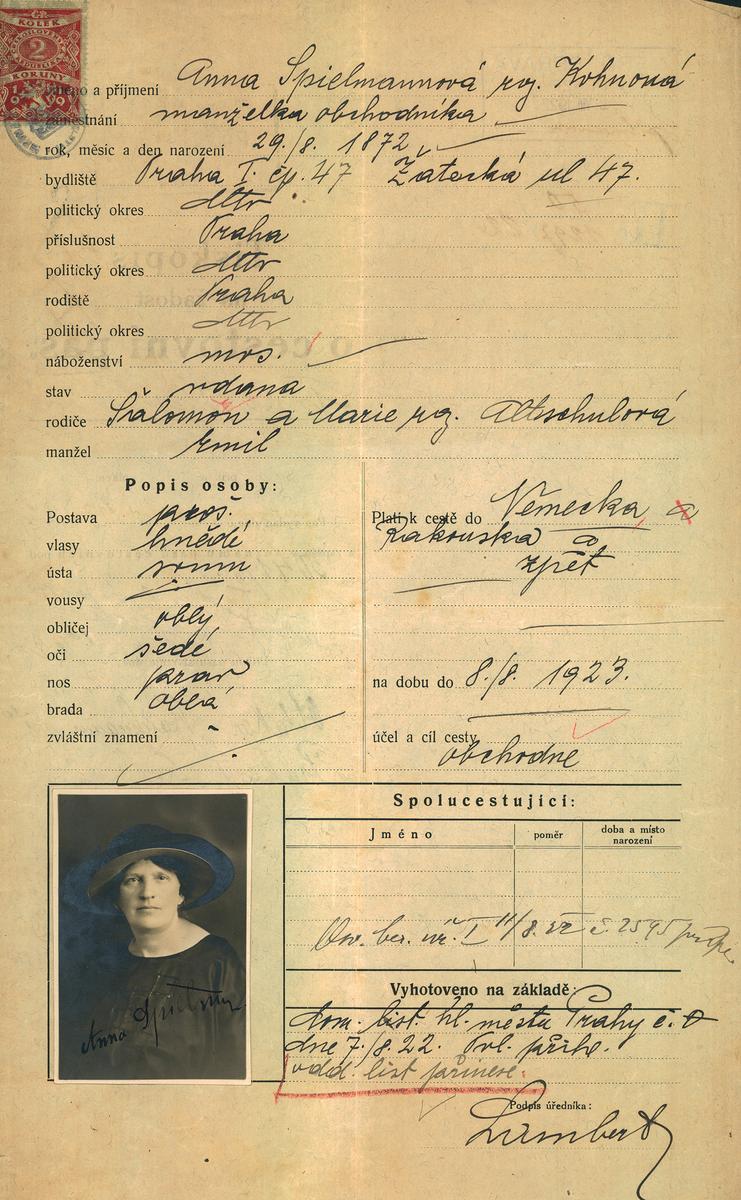 KOLEK
2
KORUNY
Jméno a příjmení Anna Spielmannová roz. Kohnová
zaměstnání manželka obchodníka
rok, měsíc a den narození 29./8. 1872
bydliště Praha I. čp. 47 Žatecká ul 47.
politický okres dtto
příslušnost Praha
politický okres dtto
rodiště Praha
politický okres dtto
náboženství mos.
stav vdana
rodiče Šalomon a Marie roz. Altschulová
manžel Emil
Popis osoby:
Postava pros.
vlasy hnědé
ústa
vousy
obličej oblý
oči šedé
nos prav
brada oblá
zvláštní znamení
Platí k cestě do Německa a
Rakouska a
zpět
na dobu do 8./8. 1923.
účel a cíl cesty
obchodne
Spolucestující:
Jméno
poměr
doba a místo
narození
I 11/8. č. 2595
Vyhotoveno na základě:
dom. list. hl. města Prahy č.
dne 7./8. 22. Pol. přihl.
odd. list přinese.
Podpis úředníka:
Lambert
Anna